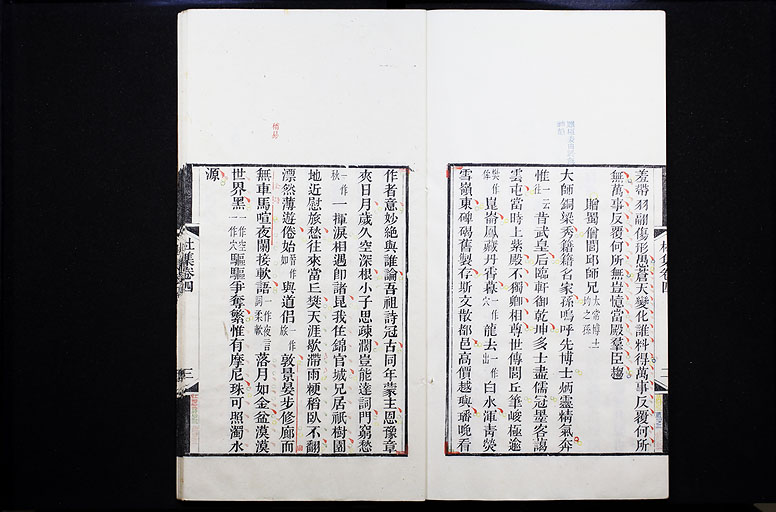 羞帶羽翮傷形愚蒼天變化誰料得萬事反覆何所
無萬事反覆何所無豈憶當殿羣臣趨
贈蜀僧閭邱師兄 太常博士均之孫
大師銅梁秀籍籍名家孫嗚呼先博士炳靈精氣奔
惟一云往昔武皇后臨軒御乾坤多士盡儒冠墨客藹
雲屯當時上紫殿不獨卿相尊世傳閭丘筆峻極逾
崑崙鳳藏丹霄暮一作穴龍去一作出白水渾青熒
雪嶺東碑碣舊製存斯文散都邑高價越璵璠晚看
杜集卷四
二
作者意妙絕與誰論吾祖詩冠古同年蒙主恩豫章
夾日月歲久空深根小子思疎濶豈能達詞門窮愁
一作秋一揮淚相遇即諸昆我住錦官城兄居祇樹園
地近慰旅愁往來當丘樊天涯歇滯雨粳稻臥不翻
漂然薄遊倦始與道侶敦景晏步修廊而
無車馬喧夜闌接軟語一作夜言詞柔軟落月如金盆漠漠
世界黑一作空一作穴驅驅爭奪繁惟有摩尼珠可照濁水
源
杜集卷四
三